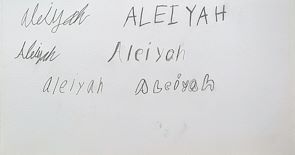 aleiyah ALEIYAH
Aleiyah Aleiyah
aleiyah aleiyah